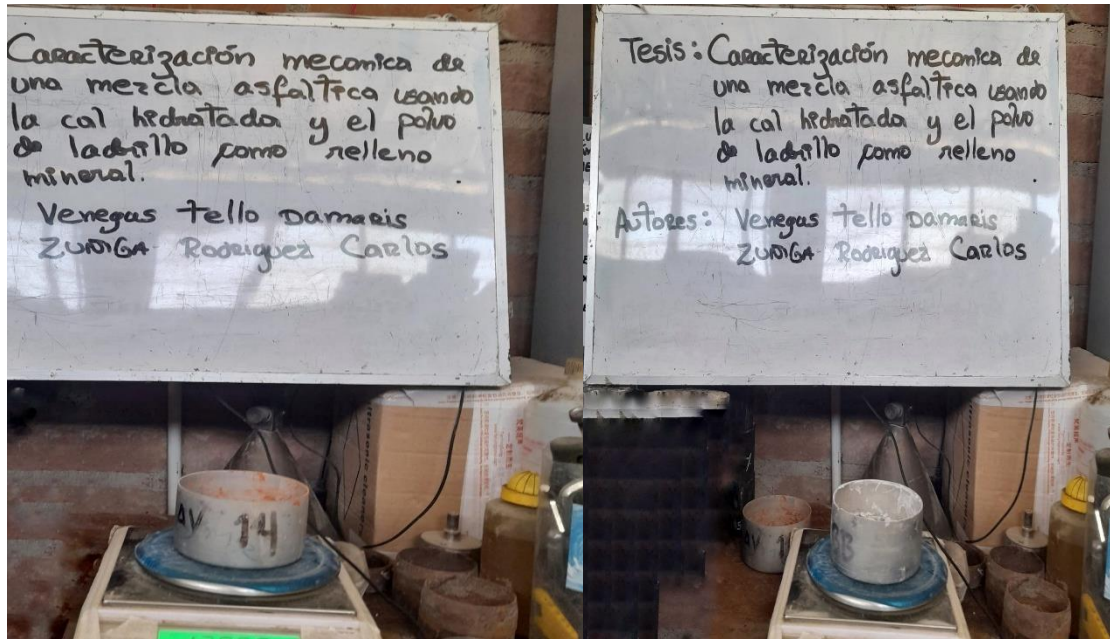 Caracterización mecanica de
una mezcla asfaltica usando
la cal hidratada y el polvo
de ladrillo como relleno
mineral.
Venegas Tello Damaris
ZUÑIGA Rodriguez Carlos
14
Tesis: Caracterización mecanica de
una mezcla asfaltica usando
la cal hidratada y el polvo
de ladrillo como relleno
mineral.
Autores: Venegas Tello Damaris
ZUÑIGA Rodriguez Carlos